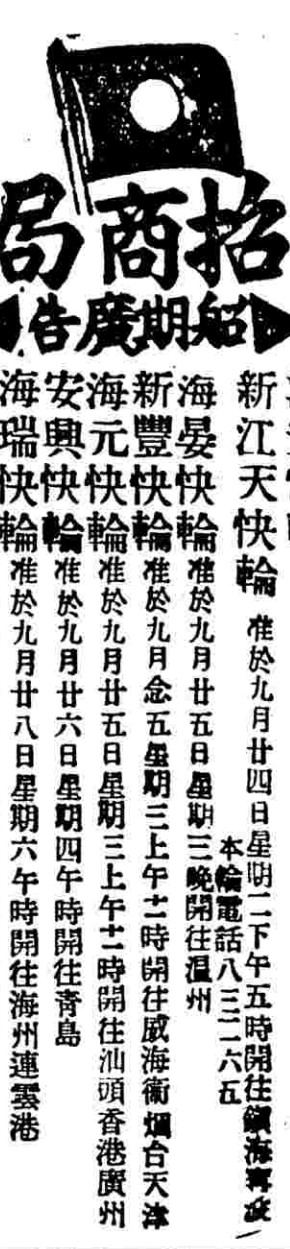 招商局
船期廣告
新江天快輪 准於九月廿四日星期二下午五時開往鎮海寧波
本輪電話八三一六五
海晏快輪 准於九月廿五日星期三晚開往溫州
新豐快輪 准於九月念五星期三上午十二時開往威海衞烟台天津
海元快輪 准於九月廿五日星期三上午十二時開往汕頭香港廣州
安興快輪 准於九月廿六日星期四午時開往青島
海瑞快輪 准於九月廿八日星期六午時開往海州連雲港